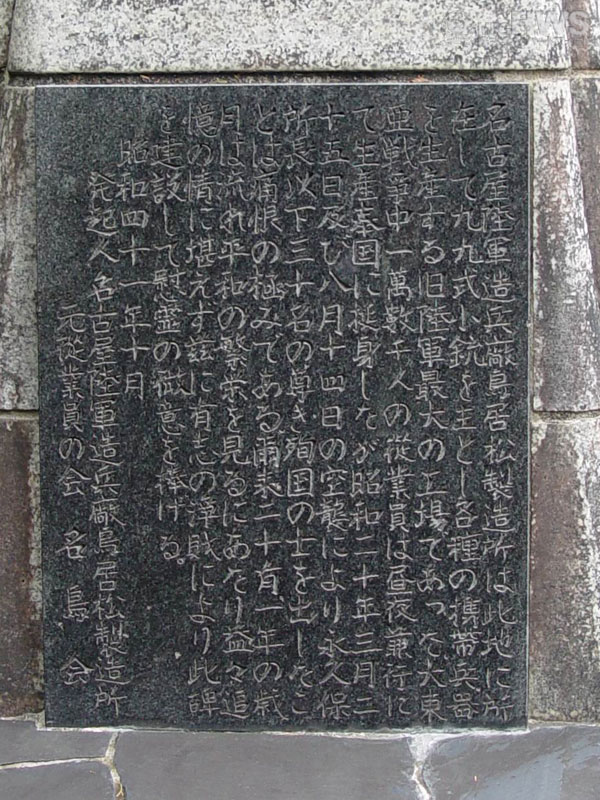 名古屋陸軍造兵廠鳥居松製造所は此地に所
在して九九式小銃を主とし各種の携帯兵器
を生産する旧陸軍最大の工場であった大東
亜戦争中一萬数千人の従業員は昼夜兼行に
て生産奉国に挺身したが昭和二十年三月二
十五日及び八月十四日の空襲により永久保
所長以下三十名の尊き殉国の士を出したこ
とは痛恨の極みである爾来二十有一年の歳
月は流れ平和の繁栄を見るにあたり益々追
憶の情に堪えず茲に有志の浄財により此碑
を建設して慰霊の微意を捧げる。
昭和四十一年十月
発起人名古屋陸軍造兵廠鳥居松製造所
元従業員の会 名鳥会